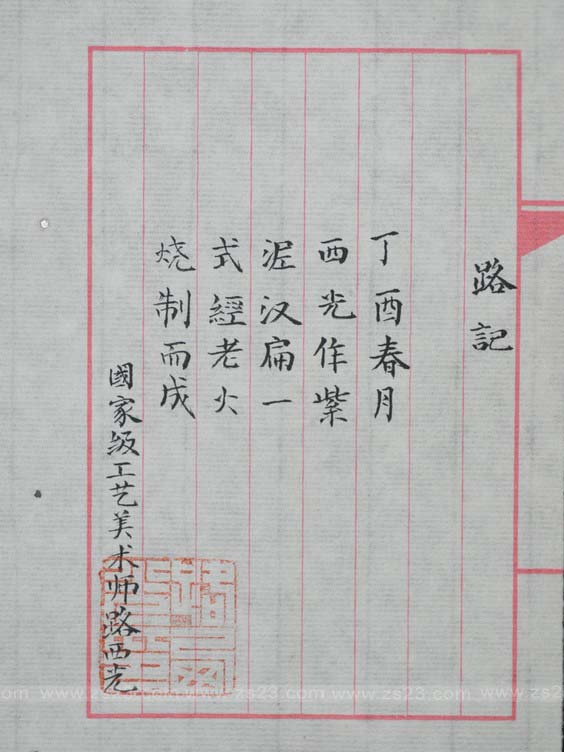 路記
丁酉春月
西光作紫
泥汉扁一
式經老火
烧制而成
國家级工艺美术师路西光
www.zs23.com www.zs23.com www.zs23.com www.zs2